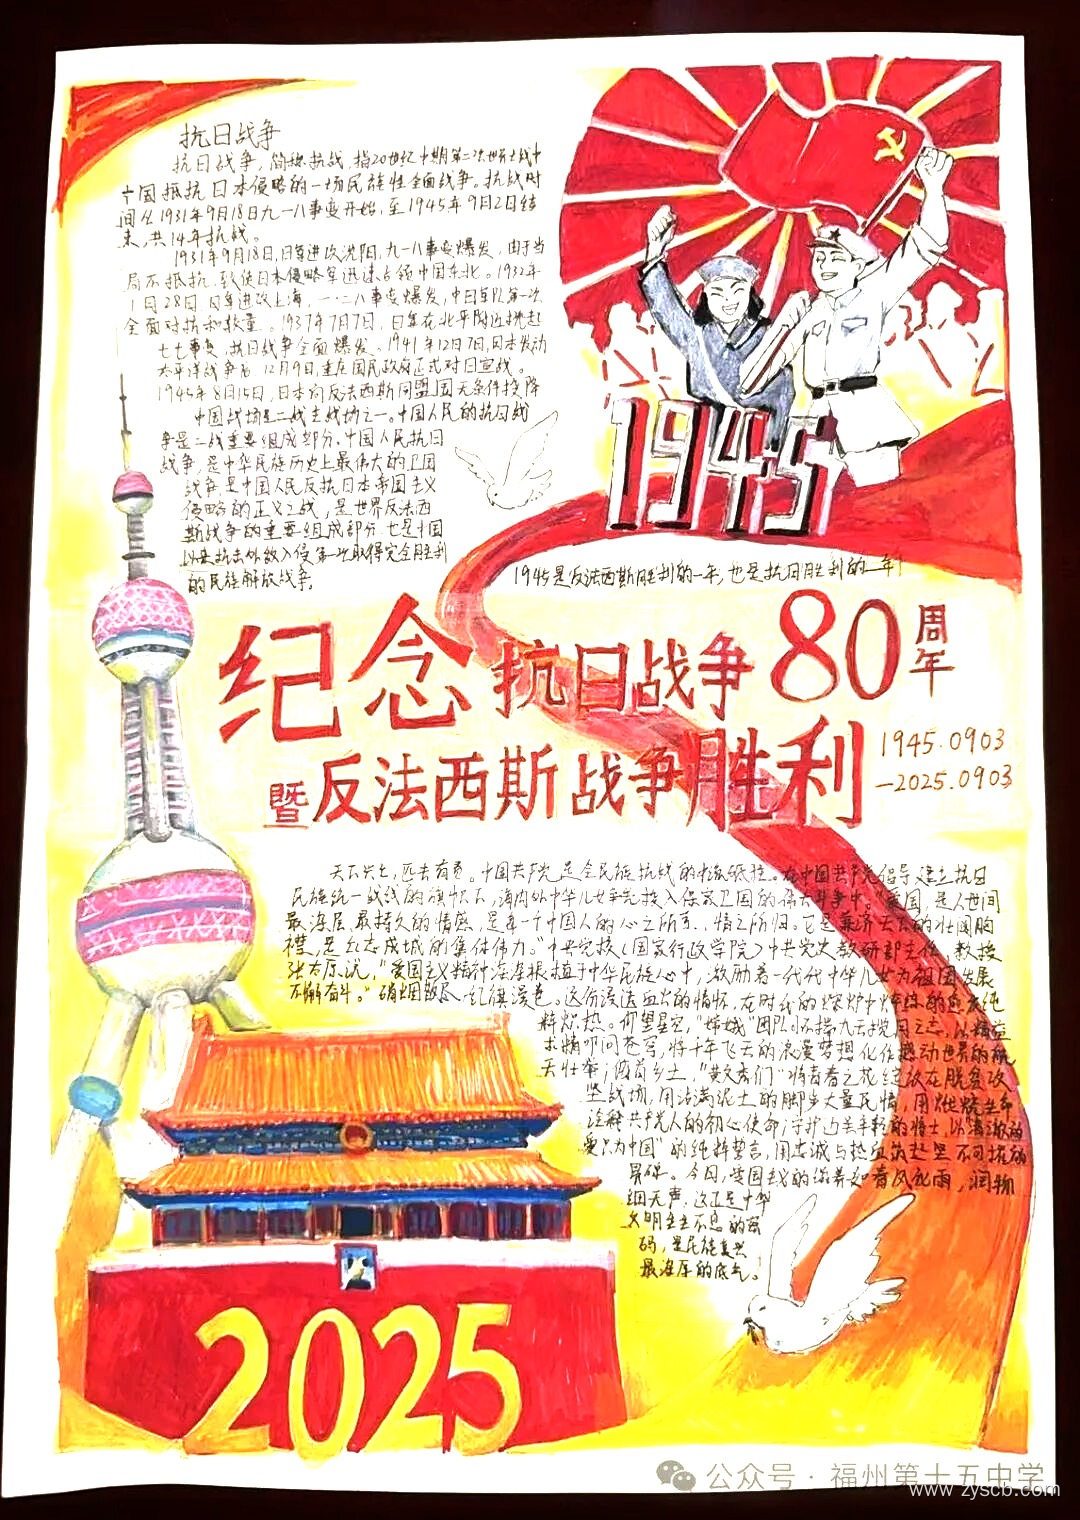 抗日战争
抗日战争，简称抗战，指20世纪中期第二次世界大战中
中国抵抗日本侵略的一场民族性全面战争。抗战时
间从1931年9月18日九一八事变开始，至1945年9月2日结
束，共14年抗战。
1931年9月18日，日军进攻沈阳，九一八事变爆发，由于当
局不抵抗，致使日本侵略军迅速占领中国东北。1932年
1月28日，日军进攻上海，一·二八事变爆发，中日军队第一次
全面对抗和较量。1937年7月7日，日军在北平附近挑起
七七事变，抗日战争全面爆发。1941年12月7日，日本发动
太平洋战争后，12月9日，重庆国民政府正式对日宣战。
1945年8月15日，日本向反法西斯同盟国无条件投降
中国战场是二战主战场之一。中国人民的抗日战
争是二战重要组成部分。中国人民抗日
战争，是中华民族历史上最伟大的卫国
战争，是中国人民反抗日本帝国主义
侵略的正义之战，是世界反法西
斯战争的重要组成部分，也是中国
以来抗击外敌入侵第一次取得完全胜利
的民族解放战争。
1945
1945是反法西斯胜利的一年，也是抗日胜利的一年！
纪念抗日战争80周年
暨反法西斯战争胜利
1945.0903
—2025.0903
天下兴亡，匹夫有责。中国共产党是全民族抗战的中流砥柱。在中国共产党倡导建立抗日
民族统一战线的旗帜下，海内外中华儿女争先投入保家卫国的伟大斗争中。"爱国，是人世间
最深层、最持久的情感，是每一个中国人的心之所系、情之所归。它是兼济天下的壮阔胸
襟，是众志成城的集体伟力。"中央党校（国家行政学院）中共党史教研部主任、教授
张太原说，"爱国主义精神深深根植于中华民族心中，激励着一代代中华儿女为祖国发展
不懈奋斗。"硝烟散尽，红旗漫卷。这份浸透血火的情怀，在时代的熔炉中淬炼的愈发纯
粹炽热。仰望星空，"嫦娥"团队不揣九天揽月之志，以精益
求精叩问苍穹，将千年飞天的浪漫梦想化作撼动世界的航
天壮举；俯首乡土，"黄文秀们"将青春之花绽放在脱贫攻
坚战场，用沾满泥土的脚步丈量民情，用燃烧生命
诠释共产党人的初心使命；守护边关手稿的将士，以"清澈的
爱只为中国"的纯粹誓言，用忠诚与热血筑起坚不可摧的
屏障。今日，爱国主义的滋养如春风化雨，润物
细无声，这正是中华
文明生生不息的密
码，是民族复兴
最深厚的底气。
2025
公众号·福州第十五中学
www.zyscb.com